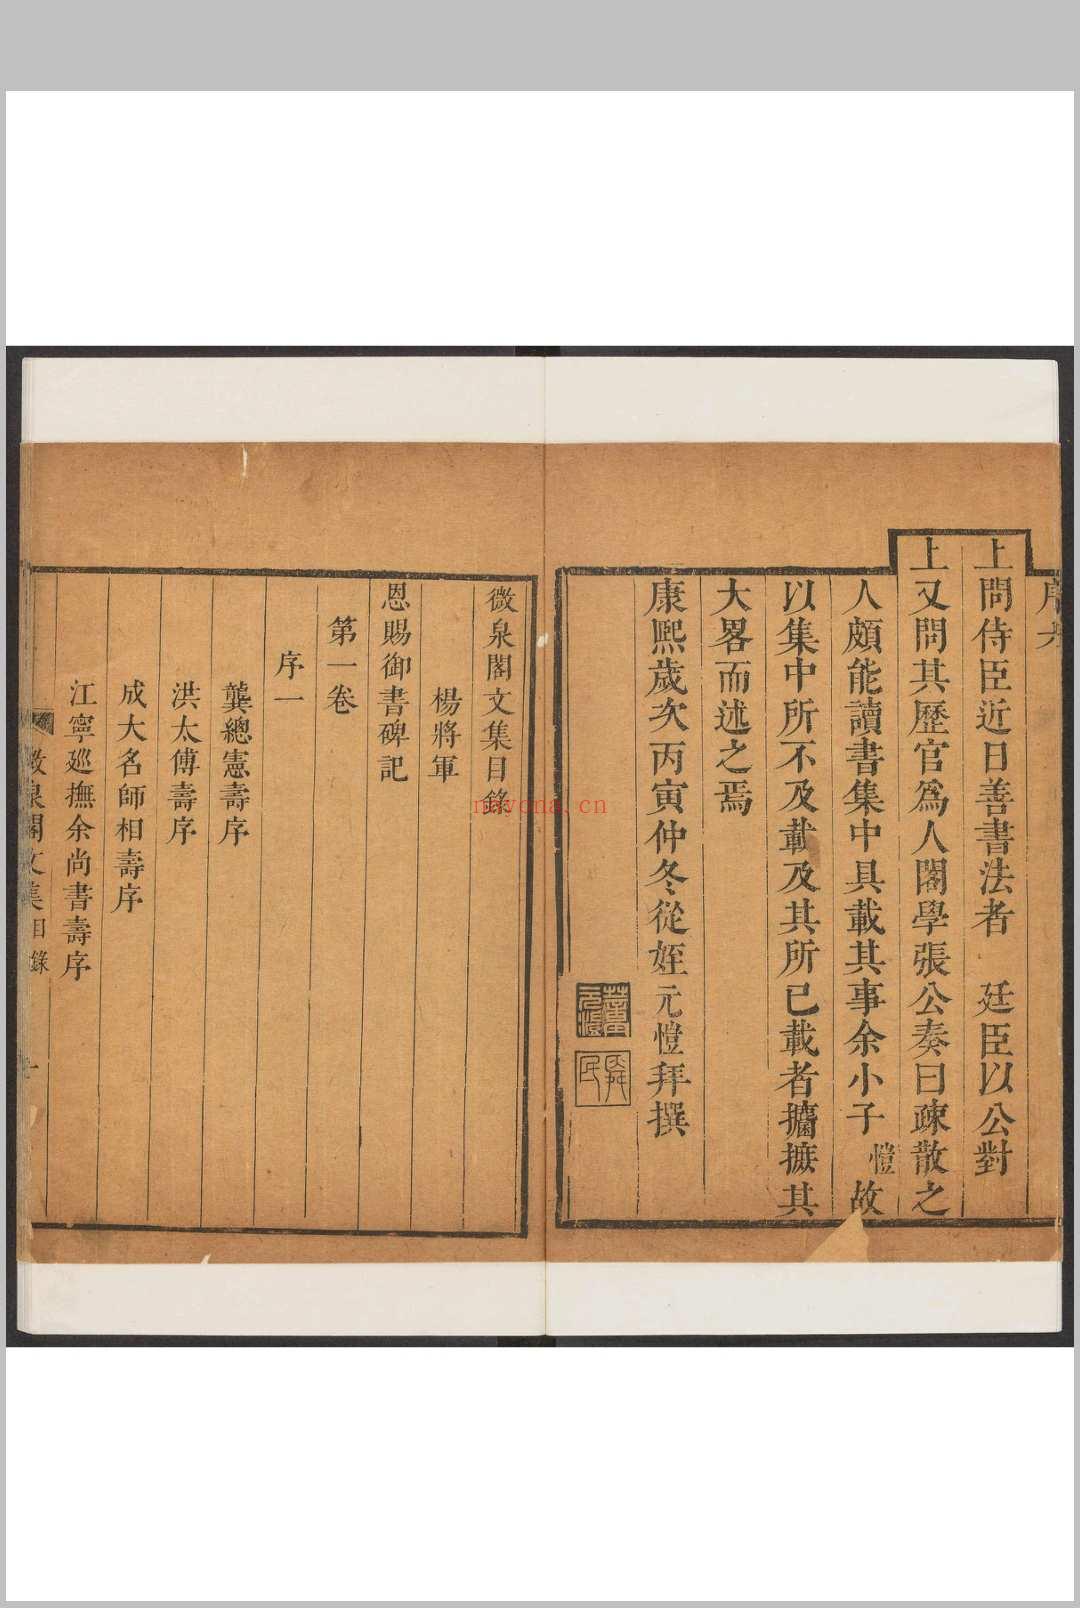 上問侍臣近日善書法者　廷臣以公對
上又問其歷官爲人閣學張公奏曰疎散之
人頗能讀書集中具載其事余小子愷故
以集中所不及載及其所已載者攟摭其
大畧而述之焉
康熙歲次丙寅仲冬從姪元愷拜撰
微泉閣文集目錄
楊將軍
恩賜御書碑記
第一卷
序一
龔總憲壽序
洪太傅壽序
成大名師相壽序
江寧廵撫余尚書壽序
微泉閣文集目錄
nayona.cn